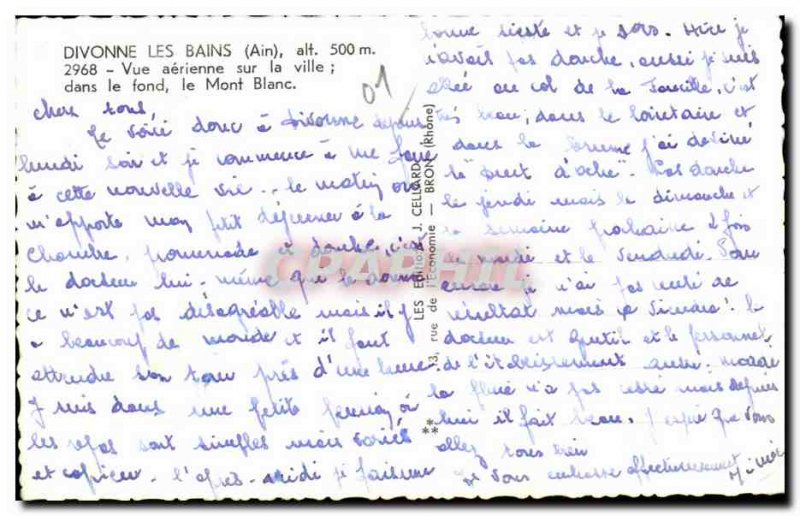 DIVONNE LES BAINS (Ain), alt. 500 m.
2968 - Vue aérienne sur la ville ;
dans le fond, le Mont Blanc.
01
chers tous,
Me voici donc à Divonne depuis
lundi soir et je commence à me faire
à cette nouvelle vie. le matin on
m'apporte mon petit déjeuner à la
chambre, promenade et douche, c'est
le docteur lui-même qui la donne
ce n'est pas désagréable mais il y
a beaucoup de monde et il faut
attendre son tour près d'une heure
Je suis dans une petite pension où
les repas sont simples mais variés
et copieux. l'après-midi je fais une
bonne sieste et je sors. Hier je
n'avais pas douche, aussi je suis
allée au col de la Faucille, c'est
très beau; dans le lointain et
dans la brume j'ai deviné
la "Dent d'Oche". Pas douche
le jeudi mais le dimanche et
la semaine prochaine 2 fois
le mardi et le vendredi. Pour
je n'ai pas de
résultat mais ça viendra! le
docteur est gentil et le personnel
de l'établissement aussi.
la pluie n'a pas cessé mais depuis
hier il fait beau. J'espère que vous
allez tous bien
Je vous embrasse affectueusement
LES EDITIONS J. CELLARD
13, rue de l'Economie — BRON (Rhône)
CPAPHIL